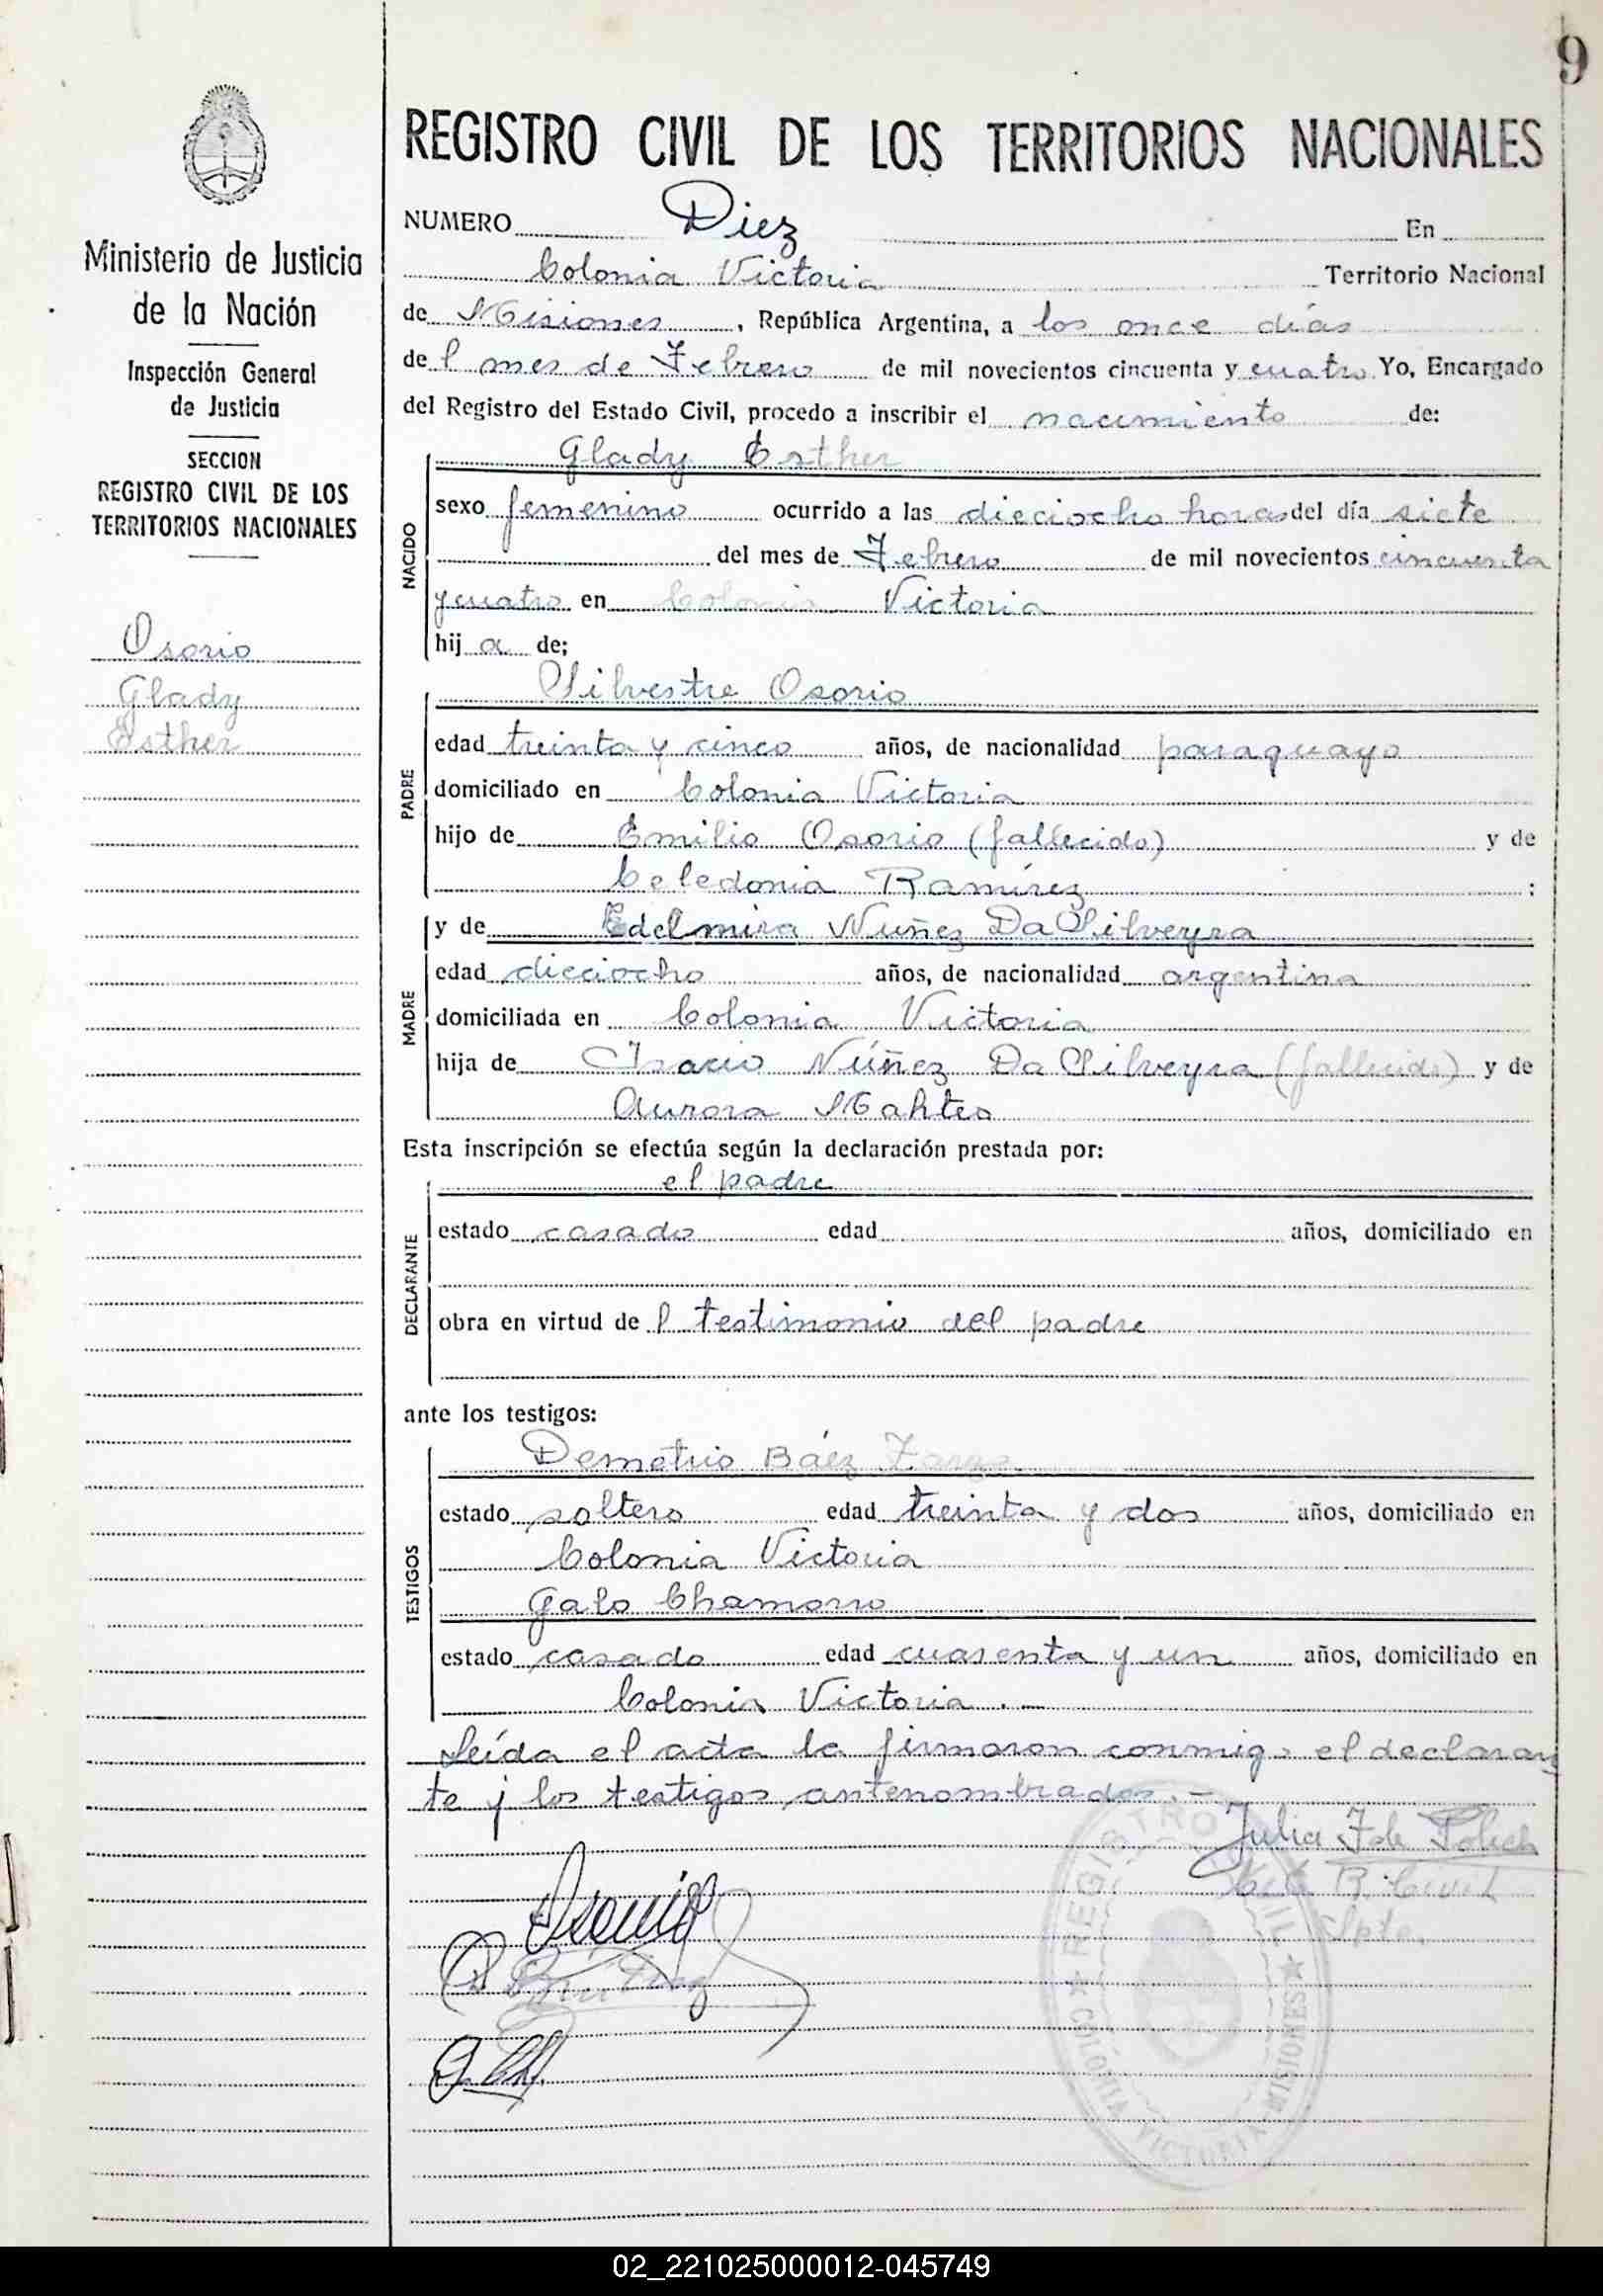 9
Ministerio de Justicia
de la Nación
Inspección General
de Justicia
SECCION
REGISTRO CIVIL DE LOS
TERRITORIOS NACIONALES
Osorio
Glady
Esther
REGISTRO CIVIL DE LOS TERRITORIOS NACIONALES
NUMERO Diez En
Colonia Victoria Territorio Nacional
de Misiones, República Argentina, a los once días
del mes de Febrero de mil novecientos cincuenta y cuatro Yo, Encargado
del Registro del Estado Civil, procedo a inscribir el nacimiento de:
NACIDO
Glady Esther
sexo femenino ocurrido a las dieciocho horas del día siete
del mes de Febrero de mil novecientos cincuenta
y cuatro en Colonia Victoria
hija de;
PADRE
Silvestre Osorio
edad treinta y cinco años, de nacionalidad paraguayo
domiciliado en Colonia Victoria
hijo de Emilio Osorio (fallecido) y de
Celedonia Ramírez :
MADRE
y de Edelmira Nuñez Da Silveyra
edad dieciocho años, de nacionalidad argentina
domiciliada en Colonia Victoria
hija de Núñez Da Silveyra (fallecido) y de
Aurora
Esta inscripción se efectúa según la declaración prestada por:
DECLARANTE
el padre
estado casado edad años, domiciliado en
obra en virtud del testimonio del padre
ante los testigos:
TESTIGOS
Demetrio Báez
estado soltero edad treinta y dos años, domiciliado en
Colonia Victoria
Galo Chamorro
estado casado edad cuarenta y un años, domiciliado en
Colonia Victoria . —
Leída el acta la firmaron conmigo el declaran
te y los testigos antenombrados. —
Julia F. de
R. Civil
Spte.
REGISTRO CIVIL
COLONIA VICTORIA MISIONES
02_221025000012-045749